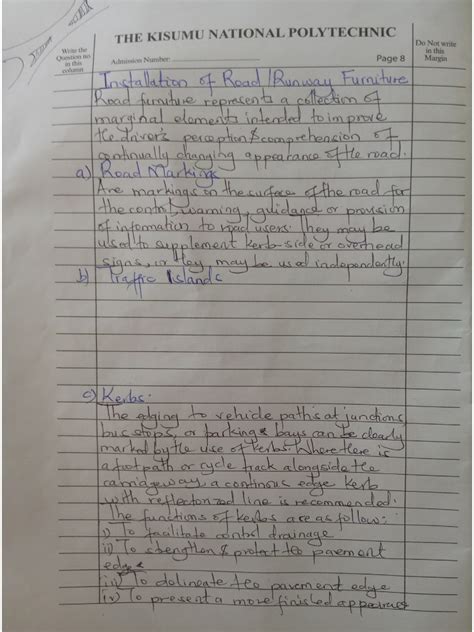 THE KISUMU NATIONAL POLYTECHNIC
Write the
Question no
in this
column
Admission Number:
Page 8
Do Not write
in this
Margin
Installation of Road/Runway Furniture
Road furniture represents a collection of
marginal elements intended to improve
the driver's perception & comprehension of
continually changing appearance of the road.
a) Road Markings
Are markings on the surface of the road for
the control, warning, guidance or provision
of information to road users. They may be
used to supplement kerb-side or overhead
signs, or they may be used independently.
b) Traffic Islands
c) Kerbs.
The edging to vehicle paths at junctions,
bus stops, or parking bays can be clearly
marked by the use of kerbs. Where there is
a footpath or cycle track alongside the
carriageway, a continous edge kerb
with reflectorized line is recommended.
The functions of kerbs are as follow:
i) To facilitate control drainage
ii) To strengthen & protect the pavement
edge
iii) To delineate the pavement edge
iv) To present a more finished appearance